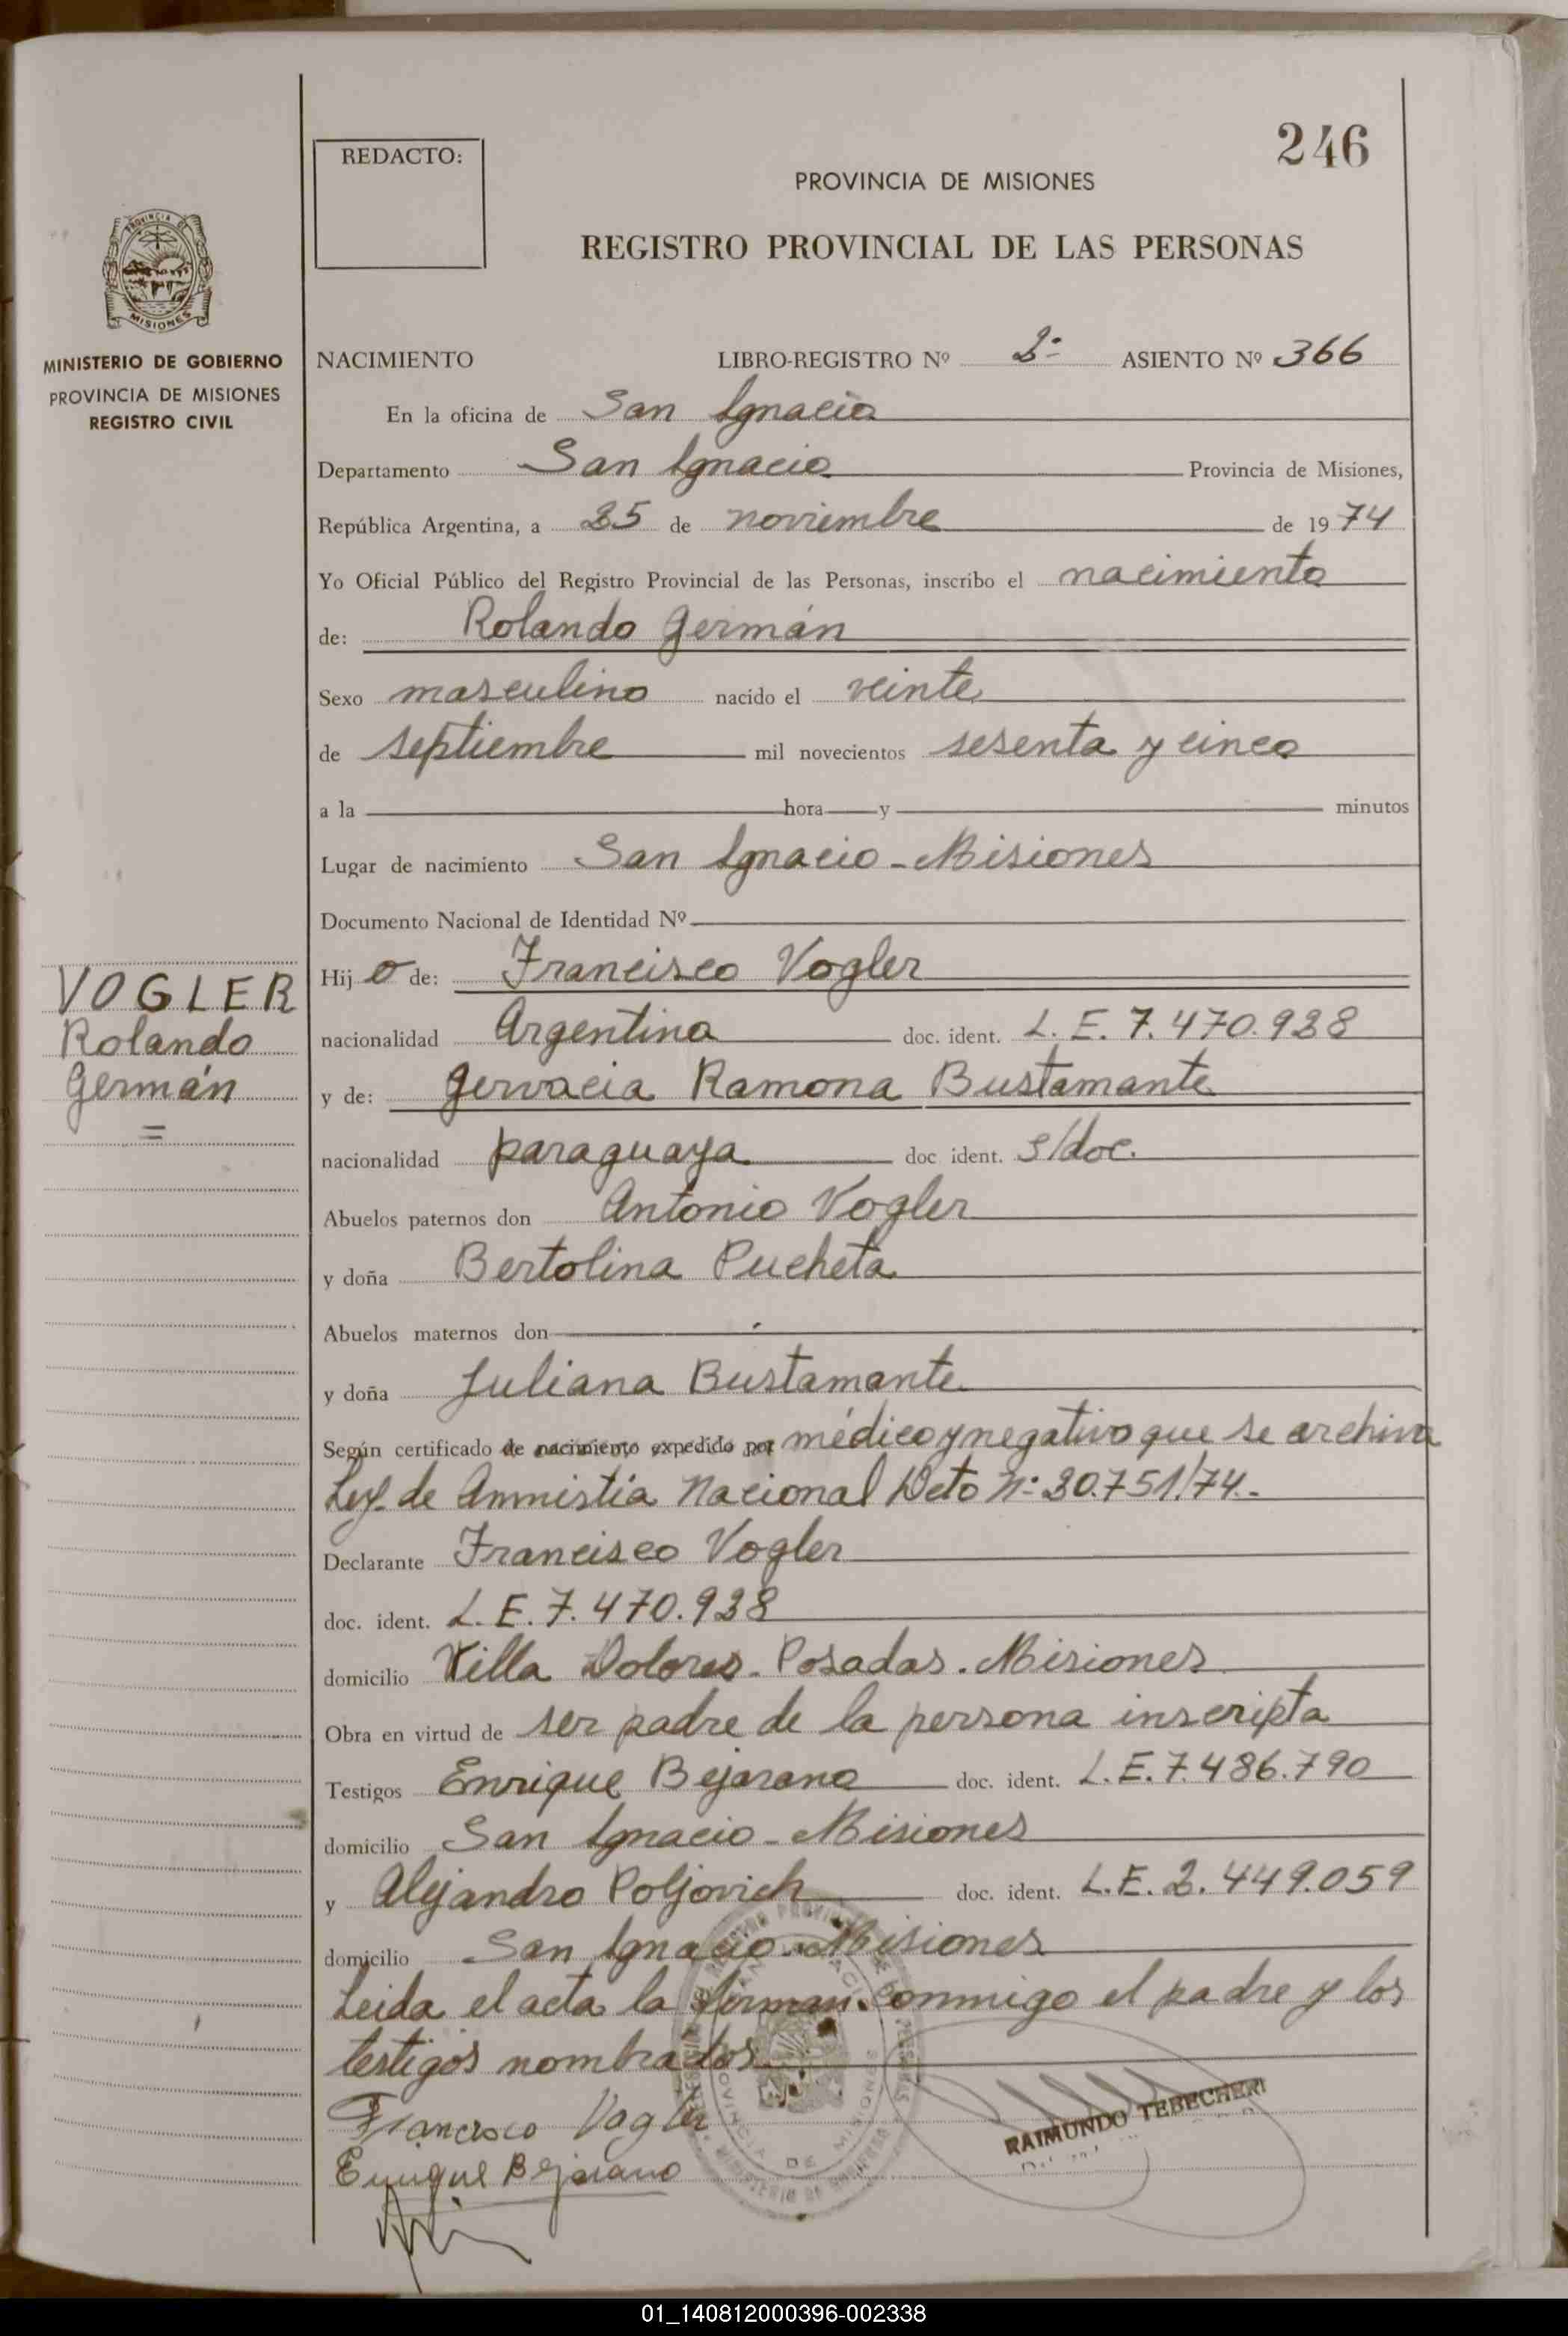 246
REDACTO:
PROVINCIA DE MISIONES
REGISTRO PROVINCIAL DE LAS PERSONAS
PROVINCIA DE
MISIONES
MINISTERIO DE GOBIERNO
PROVINCIA DE MISIONES
REGISTRO CIVIL
NACIMIENTO LIBRO-REGISTRO Nº 2º ASIENTO Nº 366
En la oficina de San Ignacio
Departamento San Ignacio Provincia de Misiones,
República Argentina, a 25 de noviembre de 1974
Yo Oficial Público del Registro Provincial de las Personas, inscribo el nacimiento
de: Rolando Germán
Sexo masculino nacido el veinte
de septiembre mil novecientos sesenta y cinco
a la hora y minutos
Lugar de nacimiento San Ignacio - Misiones
Documento Nacional de Identidad Nº
Hijo de: Francisco Vogler
nacionalidad Argentina doc. ident. L. E. 7.470.928
y de: Gervacia Ramona Bustamante
nacionalidad paraguaya doc ident. s/doc.
Abuelos paternos don Antonio Vogler
y doña Bertolina Pucheta
Abuelos maternos don
y doña Juliana Bustamante
Según certificado de nacimiento expedido por médico y negativo que se archiva
Ley de Amnistia Nacional Dcto Nº 20.751/74.-
Declarante Francisco Vogler
doc. ident. L. E. 7.470.928
domicilio Villa Dolores. Posadas. Misiones
Obra en virtud de ser padre de la persona inscripta
Testigos Enrique Bejarano doc. ident. L. E. 7.486.790
domicilio San Ignacio - Misiones
y Alejandro Poljovich doc. ident. L. E. 2.449.059
domicilio San Ignacio - Misiones
Leida el acta la firman conmigo el padre y los
testigos nombrados
Francisco Vogler
Enrique Bejarano
RAIMUNDO TEBECHERI
VOGLER
Rolando
Germán
=
01_140812000396-002338